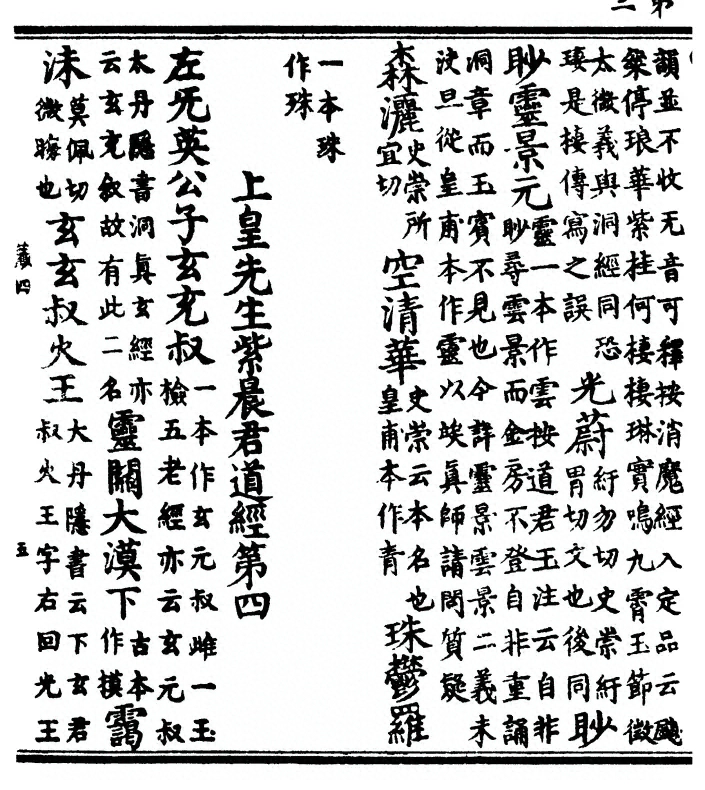 韻並不收无音可釋按消魔經入定品云飃
粲停琅華紫桂何棲棲琳實鳴九霄玉節徵
太微羲與洞經同恐
瓊是棲傳寫之誤
光蔚
紆勿切史崇紆
胃切文也後同
眇
眇靈景元
靈一本作雲按道君玉注云自非
眇尋雲景而金房不登自非重誦
洞章而玉賓不見也今詳靈景雲景二義未
決旦從皇甫本作靈以竢眞師請問質疑
森灑
史崇所
宜切
空清華
史崇云本名也
皇甫本作青
珠鬱羅
一本珠
作殊
上皇先生紫晨君道經第四
左旡英公子玄充叔
一本作玄元叔雌一玉
檢五老經亦云玄元叔
太丹隱書洞眞玄經亦
云玄充叔故有此二名
靈闗大漠下
古本
作摸
靄
沬
莫佩切
微也
玄玄叔火王
大丹隱書云下玄君
叔火王字右回光王
四
五